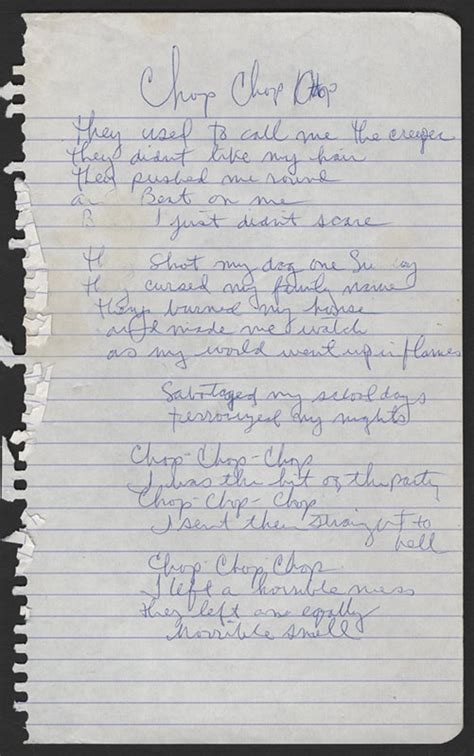 Chop Chop Chop
They used to call me the creeper
they didnt like my hair
they pushed me round
an Beat on me
B I just didn't scare
th Shot my dog one Su ay
they cursed my family name
they burned my house
and made me watch
as my world went up in flames
Sabotaged my school days
terrorized my nights
Chop-Chop-Chop
I was the hit of the party
Chop-Chop-Chop
I sent them straight to
hell
Chop Chop Chop
I left a horrible mess
they left an equally
horrible smell